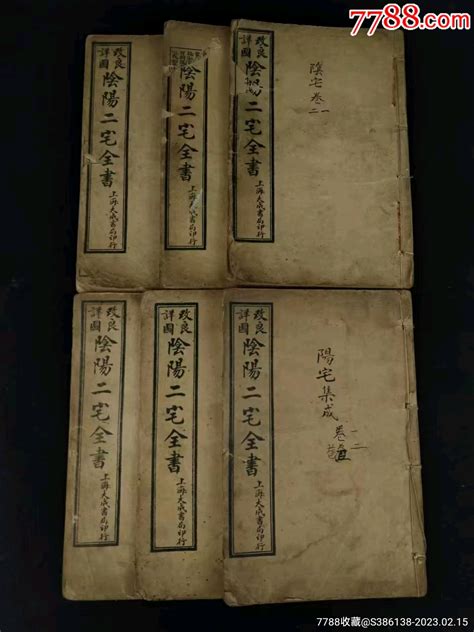 7788.com
改良
詳図
陰陽二宅全書
上海大成書局印行
改良
詳図
陰陽二宅全書
上海大成書局印行
改良
詳図
陰陽二宅全書
上海大成書局印行
陰宅卷一
二
改良
詳図
陰陽二宅全書
上海大成書局印行
改良
詳図
陰陽二宅全書
上海大成書局印行
改良
詳図
陰陽二宅全書
上海大成書局印行
陽宅集成
卷一
二
7788收藏@S386138-2023.02.15